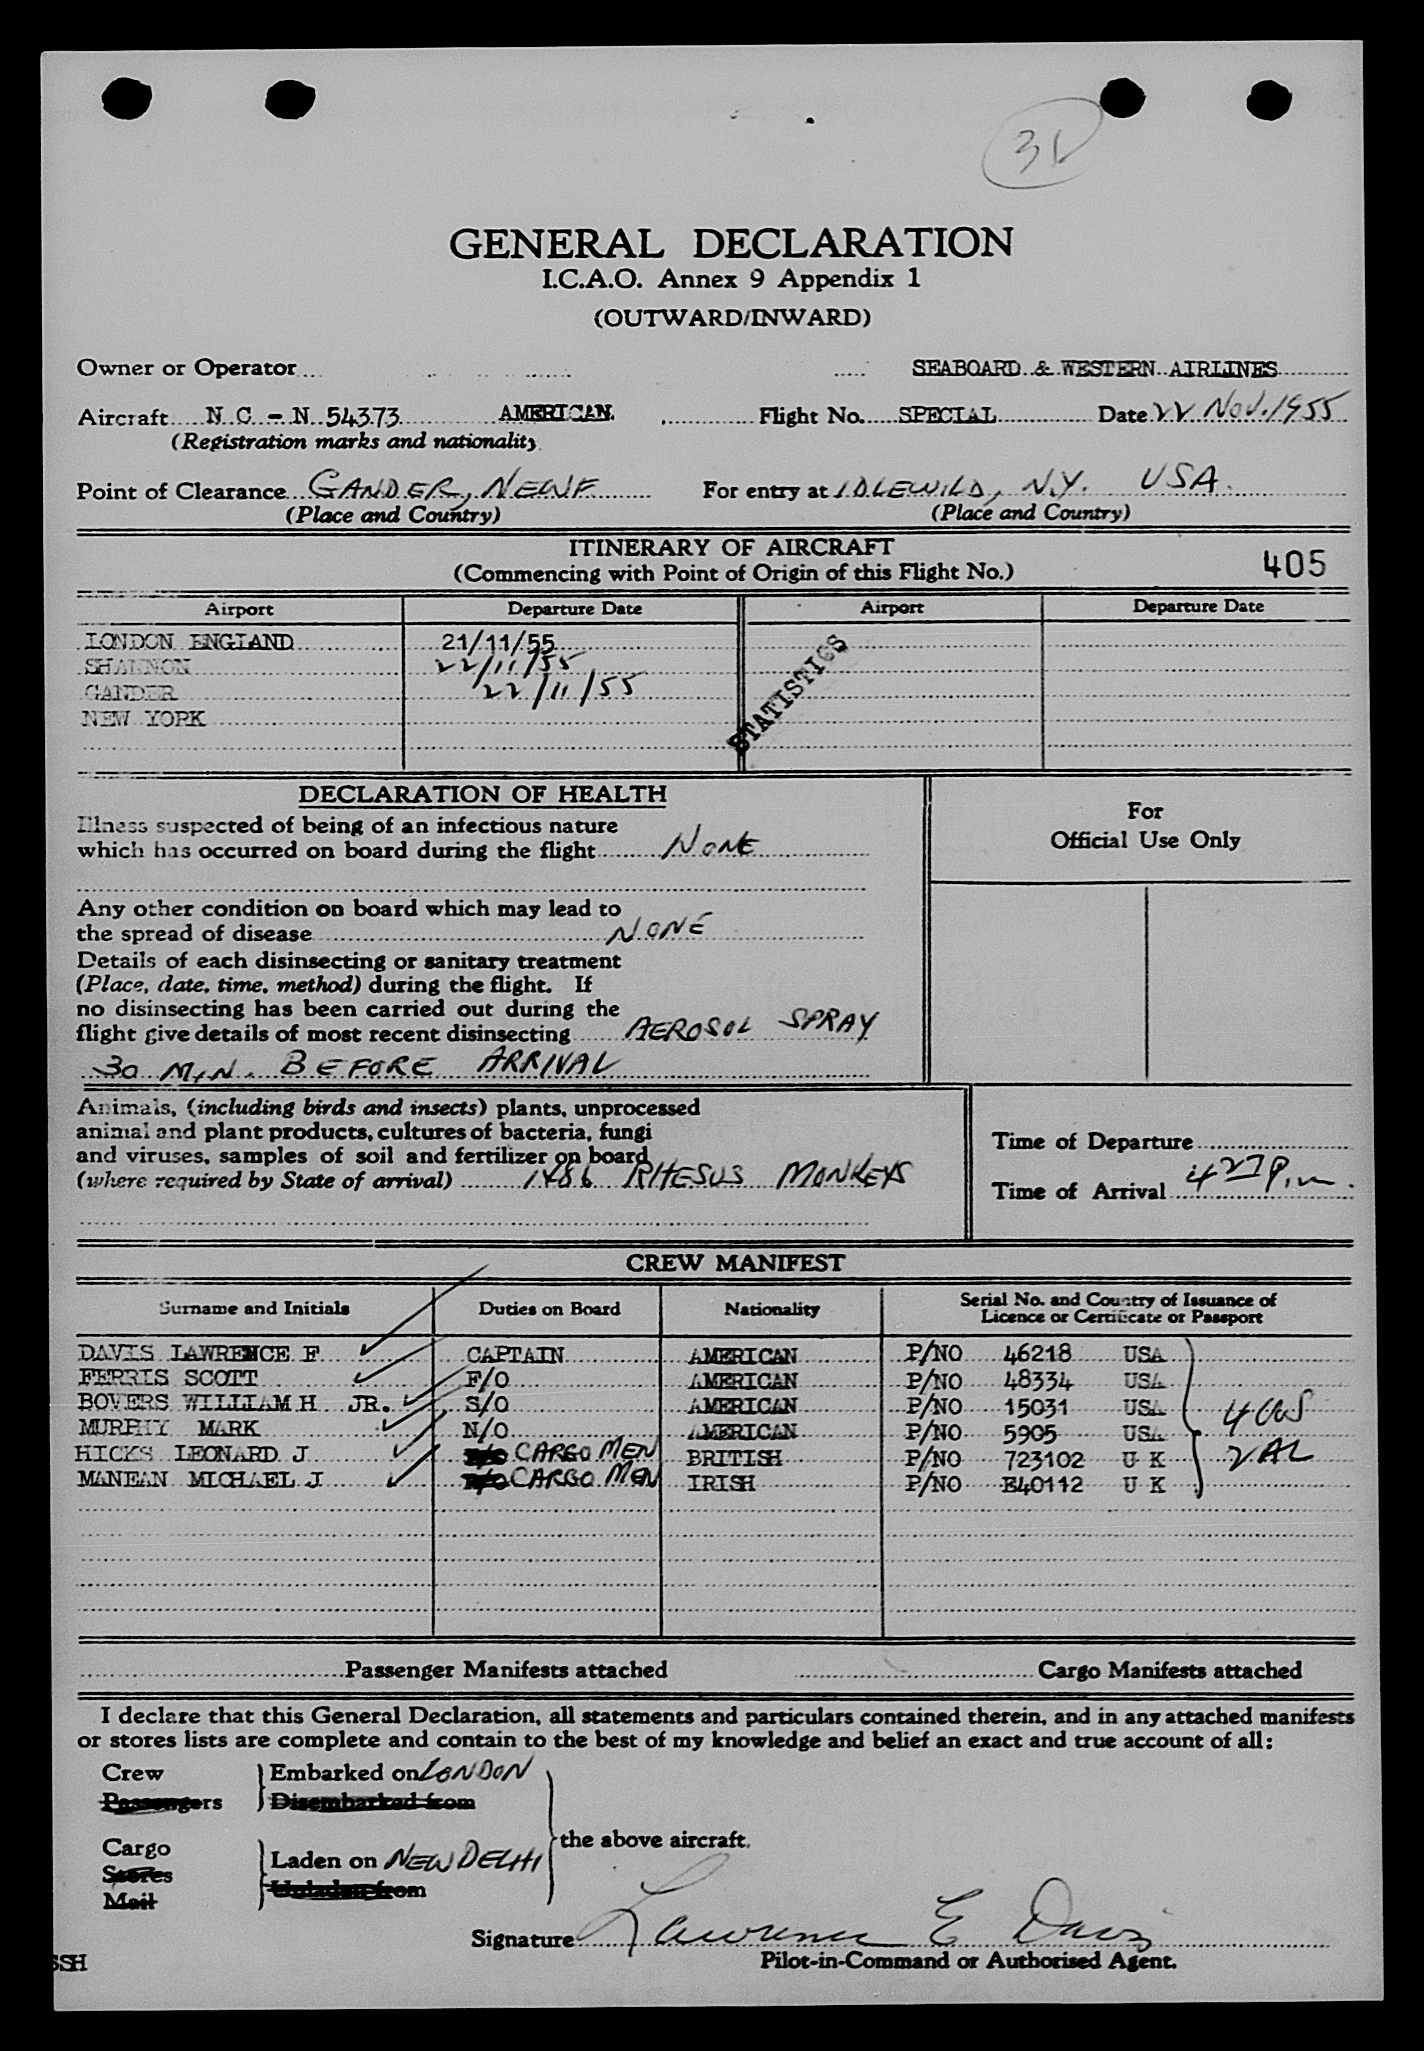 3V
GENERAL DECLARATION
I.C.A.O. Annex 9 Appendix 1
(OUTWARD/INWARD)
Owner or Operator SEABOARD & WESTERN AIRLINES
Aircraft N C - N 54373 AMERICAN. Flight No. SPECIAL Date 22 Nov. 1955
(Registration marks and nationality)
Point of Clearance GANDER, NEWF For entry at IDLEWILD, N.Y. USA.
(Place and Country) (Place and Country)
ITINERARY OF AIRCRAFT
(Commencing with Point of Origin of this Flight No.) 405
Airport Departure Date Airport Departure Date
LONDON ENGLAND 21/11/55
SHANNON 22/11/55
GANDER 22/11/55
NEW YORK
STATISTICS
DECLARATION OF HEALTH
Illness suspected of being of an infectious nature
which has occurred on board during the flight NONE
Any other condition on board which may lead to
the spread of disease NONE
Details of each disinsecting or sanitary treatment
(Place, date, time, method) during the flight. If
no disinsecting has been carried out during the
flight give details of most recent disinsecting AEROSOL SPRAY
30 MIN. BEFORE ARRIVAL
For
Official Use Only
Animals, (including birds and insects) plants, unprocessed
animal and plant products, cultures of bacteria, fungi
and viruses, samples of soil and fertilizer on board
(where required by State of arrival) 1486 RHESUS MONKEYS
Time of Departure
Time of Arrival 427 P.m.
CREW MANIFEST
Surname and Initials Duties on Board Nationality Serial No. and Country of Issuance of
Licence or Certificate or Passport
DAVIS LAWRENCE F CAPTAIN AMERICAN P/NO 46218 USA
FERRIS SCOTT F/O AMERICAN P/NO 48334 USA
BOVERS WILLIAM H JR. S/O AMERICAN P/NO 15031 USA
MURPHY MARK N/O AMERICAN P/NO 5905 USA
HICKS LEONARD J CARGO MEN BRITISH P/NO 723102 U K
MANEAN MICHAEL J CARGO MEN IRISH P/NO E40112 U K
4 US
2 AL
Passenger Manifests attached Cargo Manifests attached
I declare that this General Declaration, all statements and particulars contained therein, and in any attached manifests
or stores lists are complete and contain to the best of my knowledge and belief an exact and true account of all:
Crew Embarked on LONDON
Passengers Disembarked from
the above aircraft.
Cargo Laden on NEW DELHI
Stores
Mail Unladen from
Signature Lawrence E Davis
Pilot-in-Command or Authorised Agent.
SSH